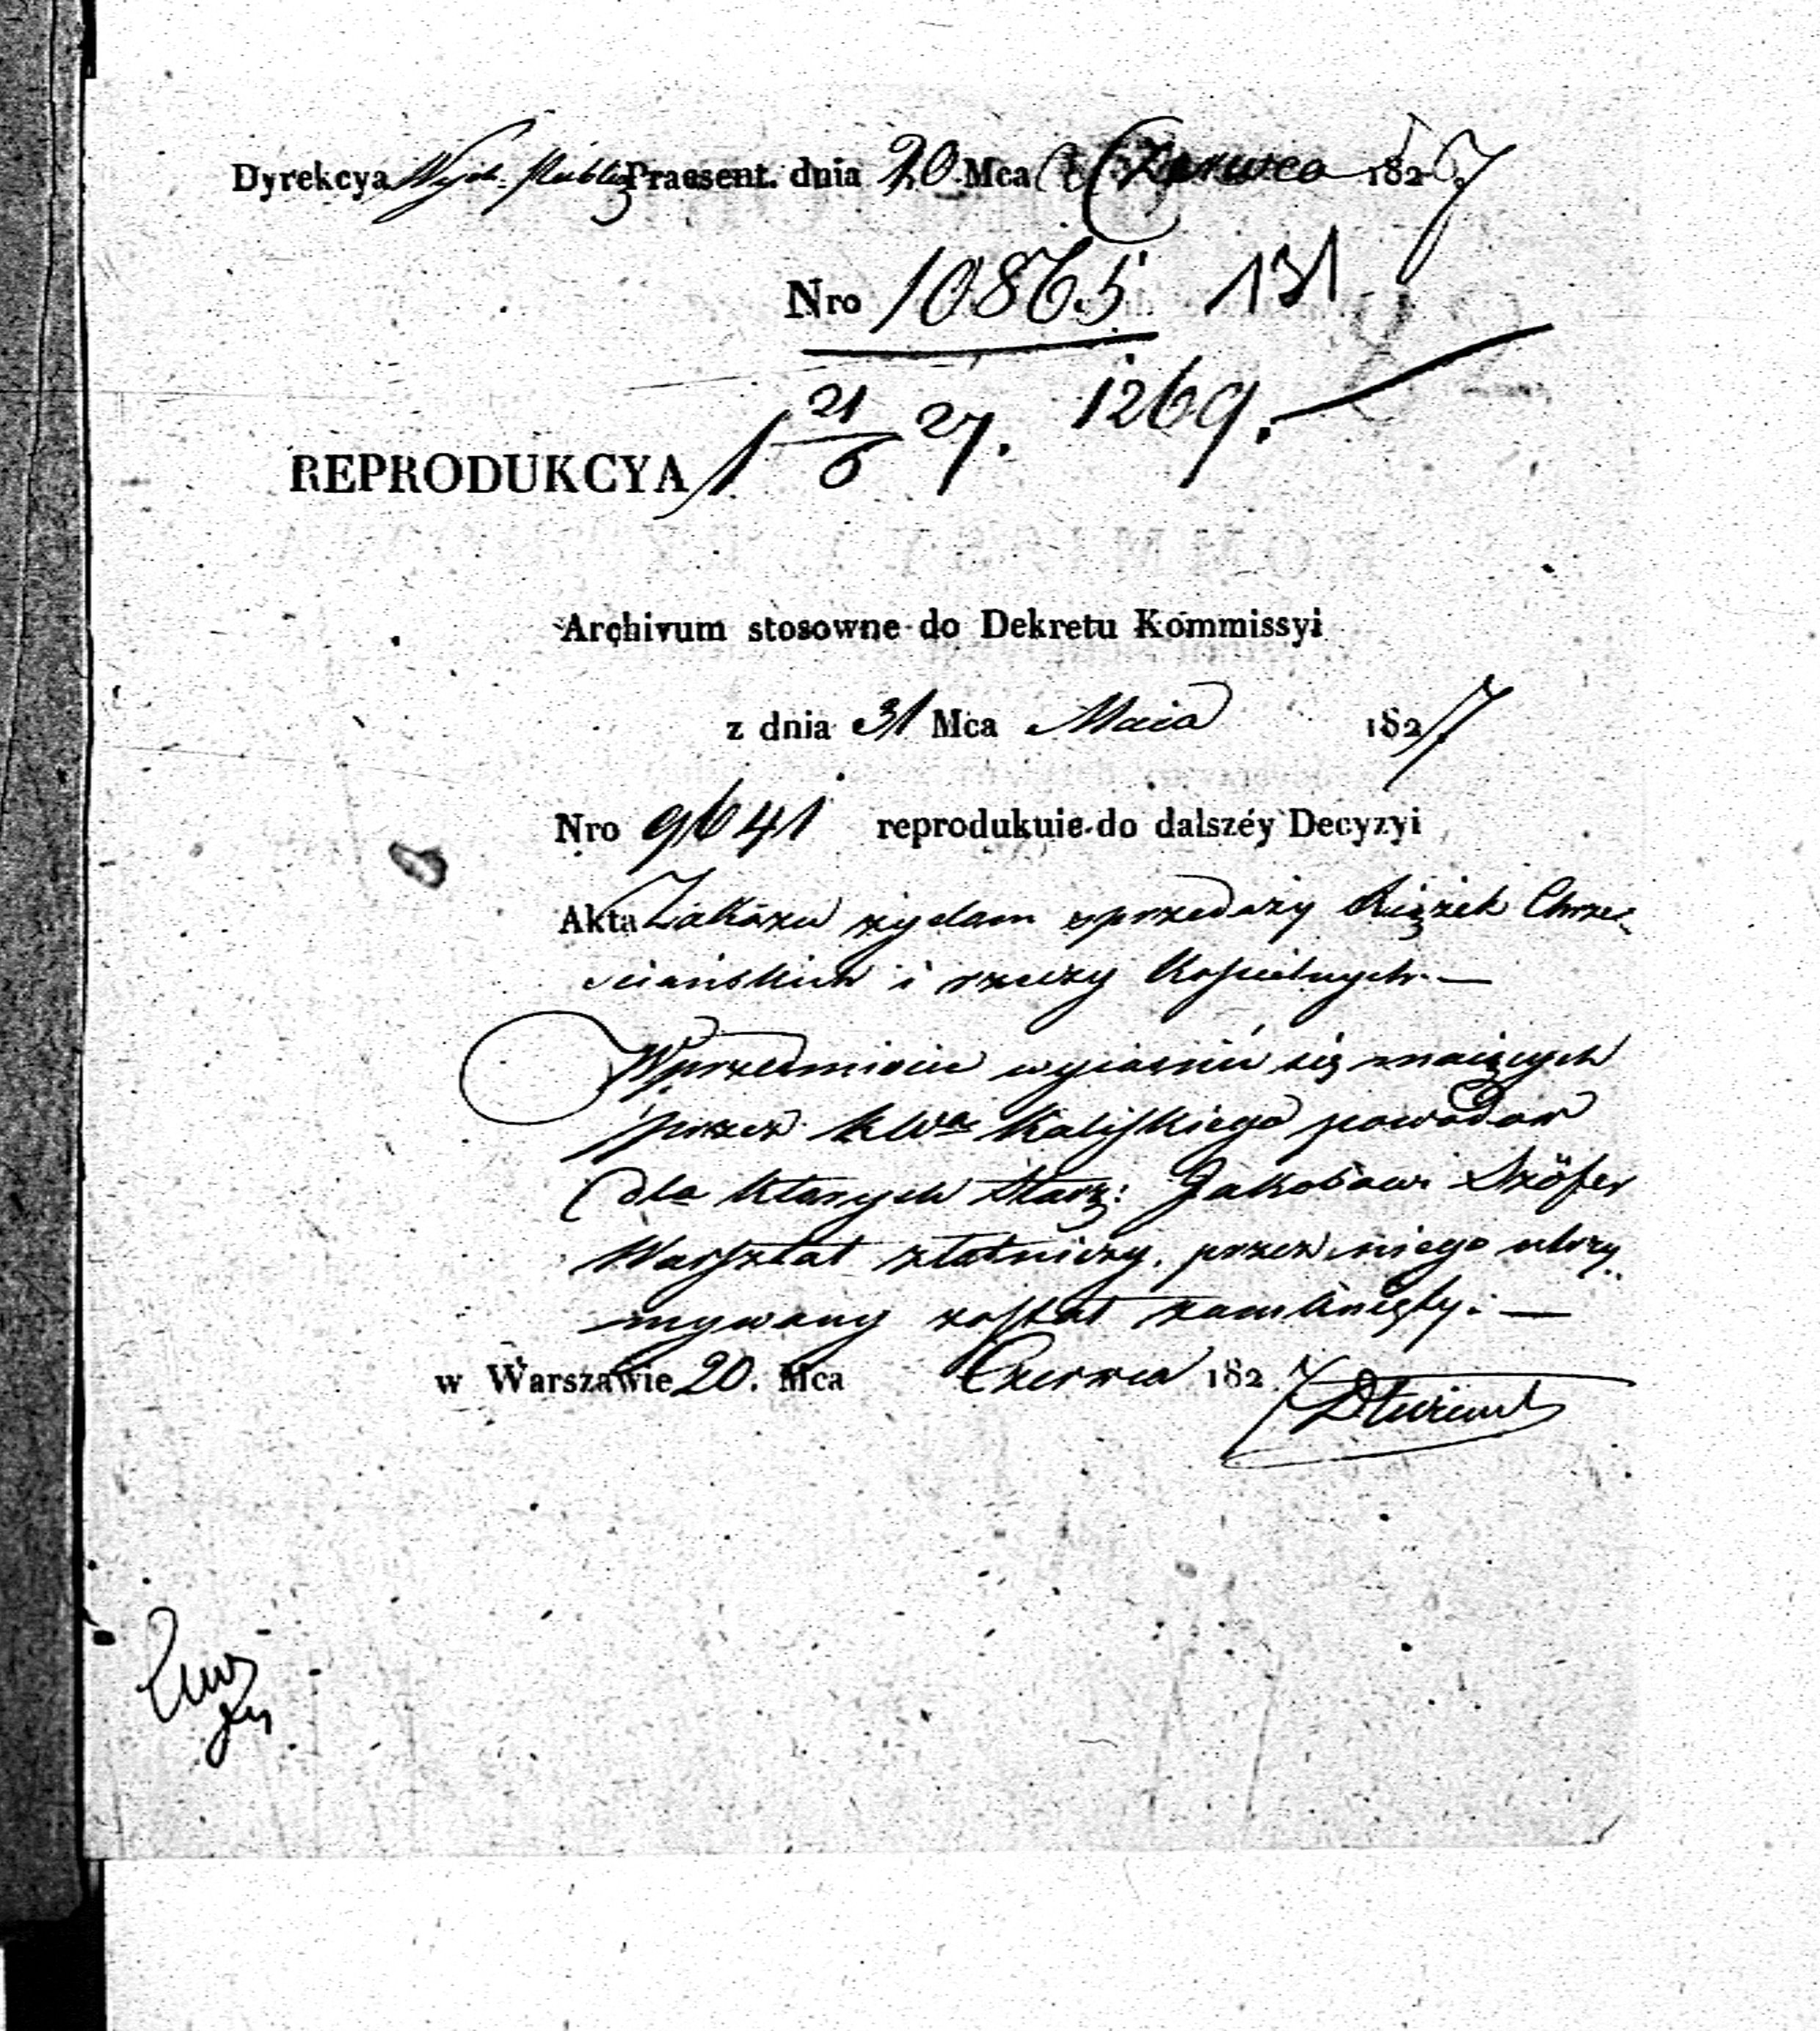 Dyrekcya Wych: Public Praesent. dnia 20 Mca Czerwca 1827
Nro 10865 131
21/6 27. 1269.
REPRODUKCYA
Archivum stosowne do Dekretu Kommissyi
z dnia 31 Mca Maia 1827
Nro 9641 reprodukuie do dalszéy Decyzyi
Akta Zakazu żydom sprzedaży Książek Chrze-
ściańskich i rzeczy Kościelnych. —
W przedmiocie wyiaśnić się maiących
przez KWa Kaliskiego powodow
dla ktorych Starz: Jakobowi Szöfer
Warsztat złotniczy, przez niego utrzy
mywany został zamknięty. —
w Warszawie 20. Mca Czerwca 1827